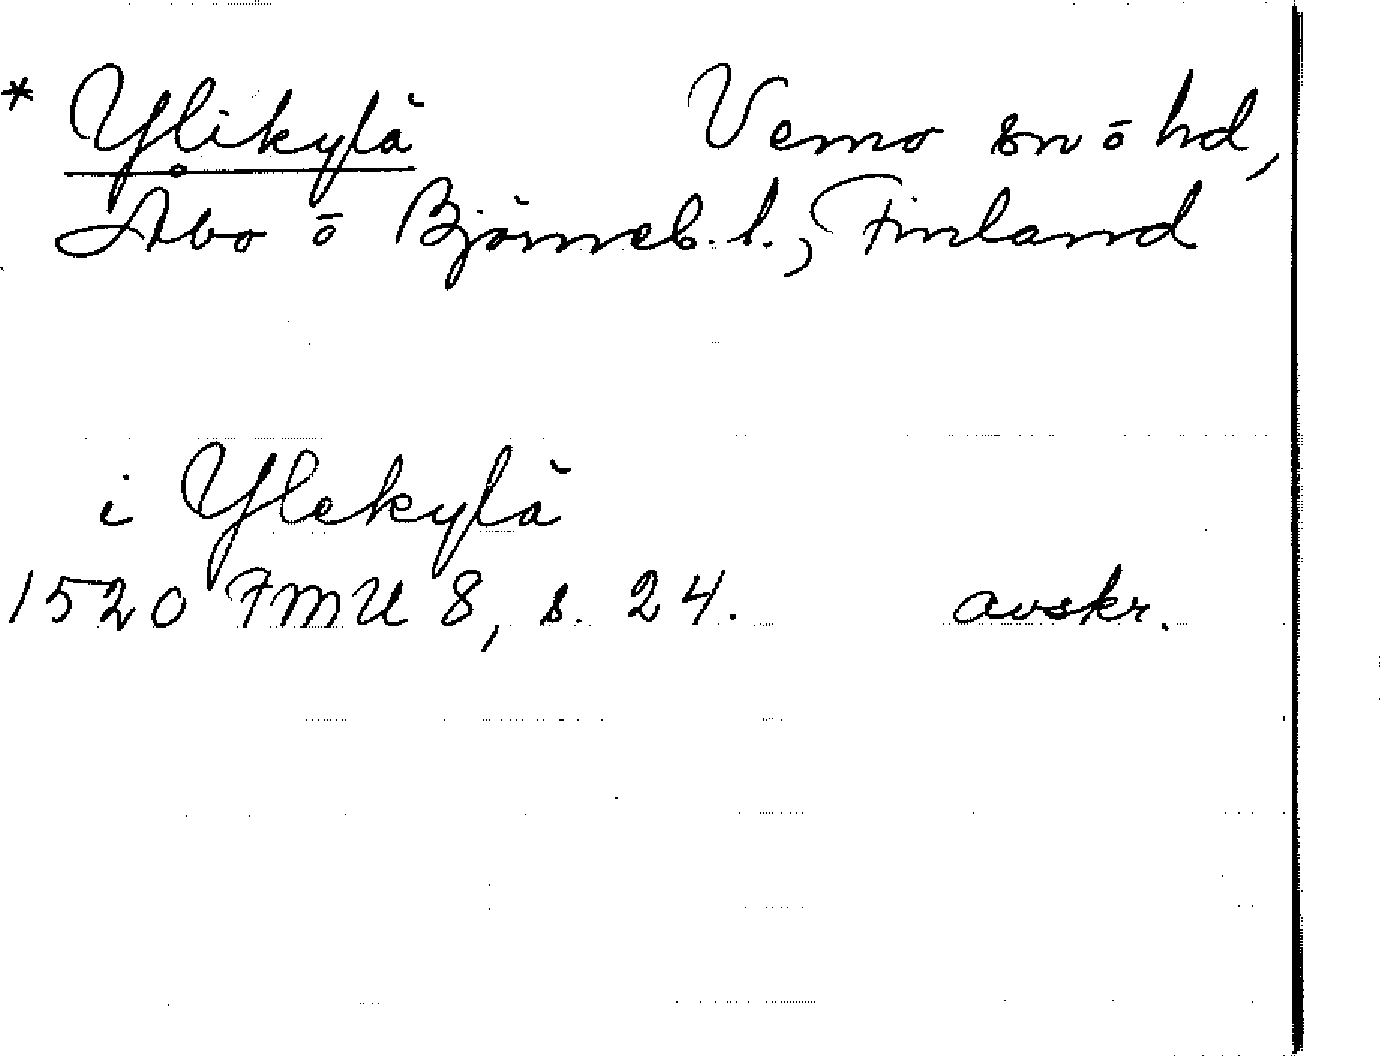 * Ylikylä Vemo sn ō hd,
Åbo ō Björneb. l., Finland
i Ylekylä
1520 FMU 8, s. 24. avskr.